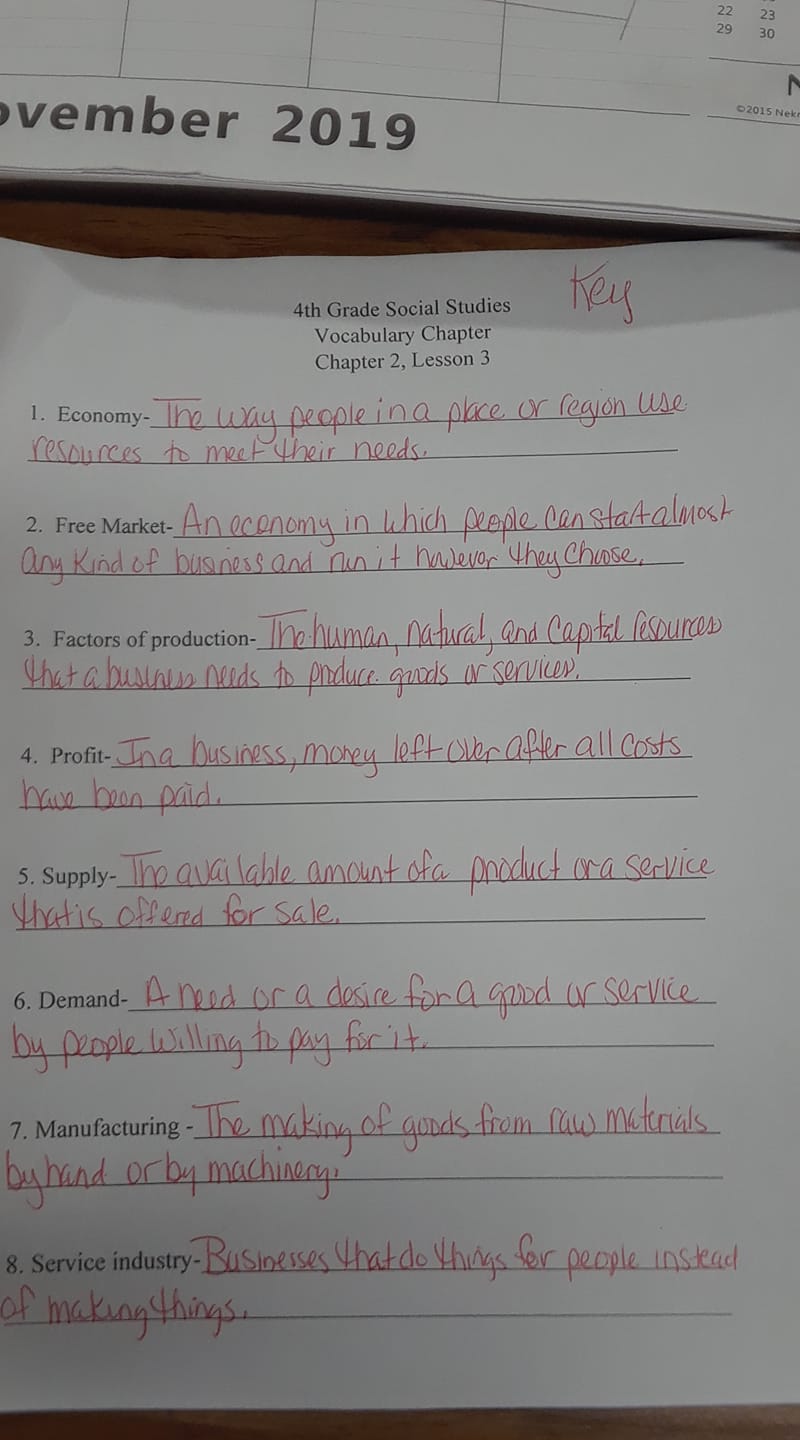 22 23
29 30
ovember 2019
©2015 Nekr
Key
4th Grade Social Studies
Vocabulary Chapter
Chapter 2, Lesson 3
1. Economy- The way people in a place or region use
resources to meet their needs.
2. Free Market- An economy in which people can start almost
any kind of business and run it however they choose.
3. Factors of production- The human, natural, and capital resources
that a business needs to produce goods or services.
4. Profit- In a business, money left over after all costs
have been paid.
5. Supply- The available amount of a product or a service
that is offered for sale.
6. Demand- A need or a desire for a good or service
by people willing to pay for it.
7. Manufacturing - The making of goods from raw materials
by hand or by machinery.
8. Service industry- Businesses that do things for people instead
of making things.